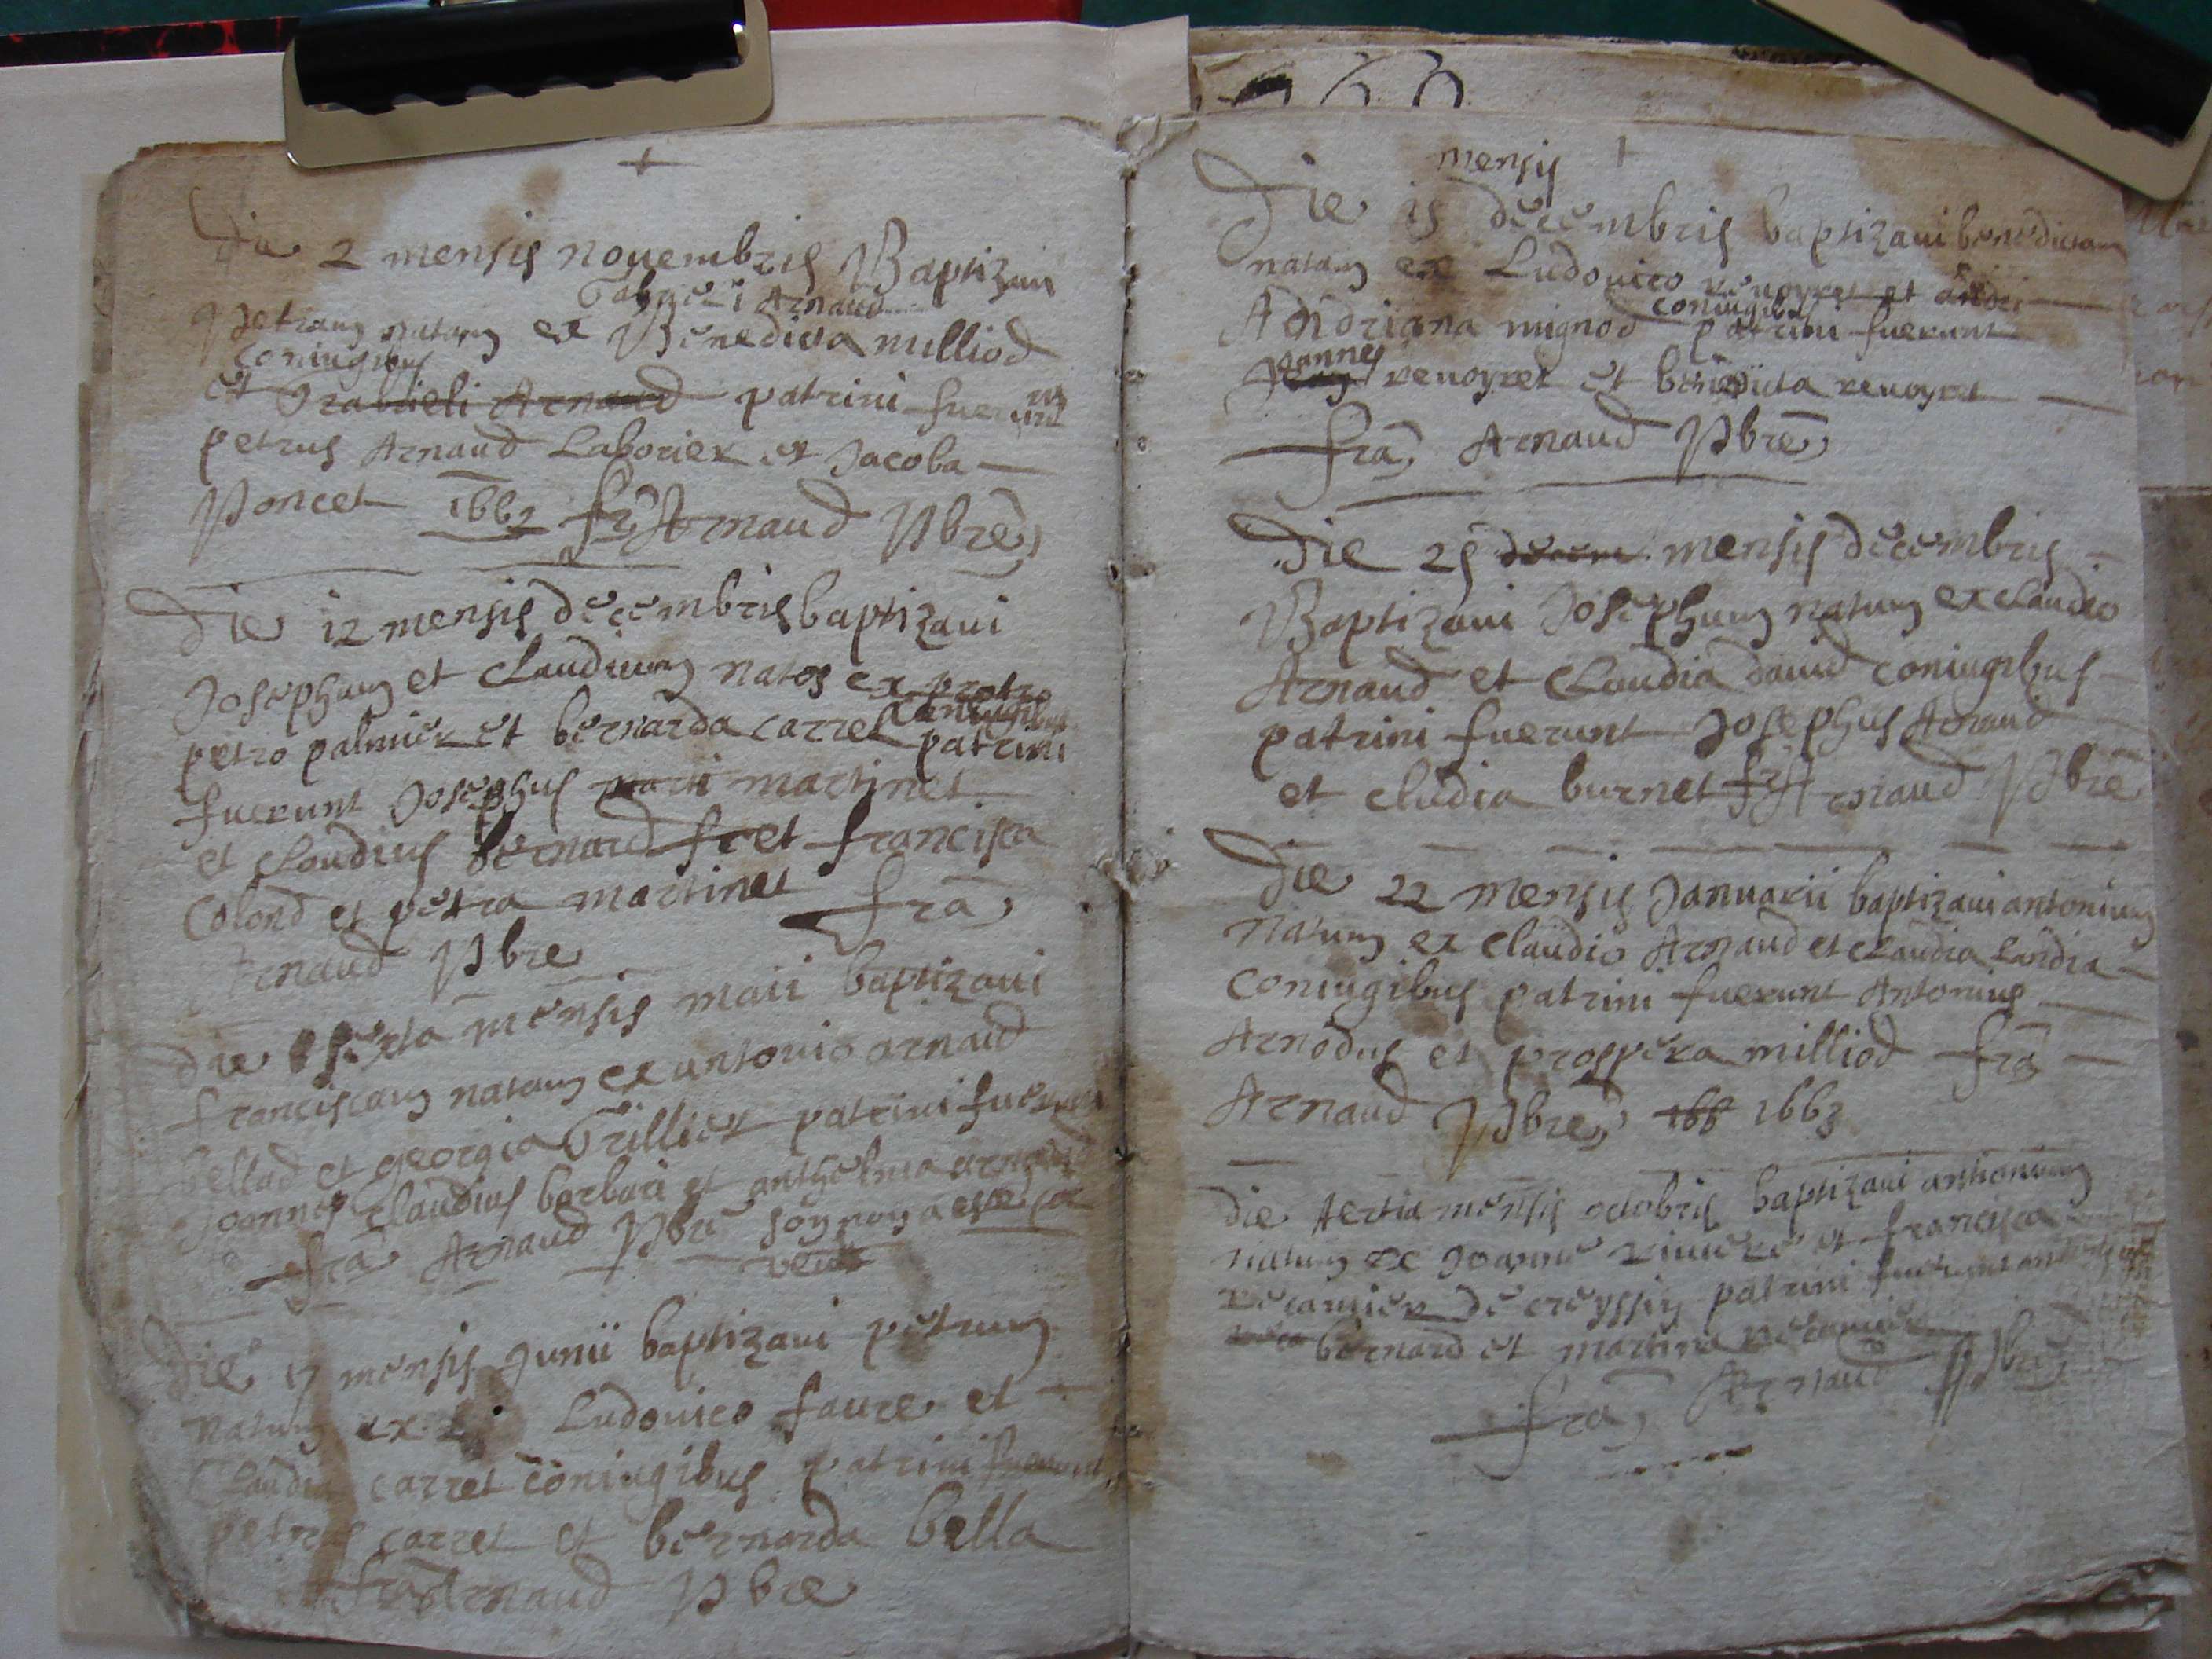 Die 2 mensis nouembris Baptizaui
Gabrieli Arnaud
petram natam ex Benedicta milliod
coniugibus
et Grabrieli Arnaud patrini fuerunt
petrus Arnaud Laborier et Jacoba
Poncet 1662 fr Arnaud Pbre
Die 12 mensis decembris baptizaui
Josephum et claudium natos ex petro
petro palmier et bernarda carrel coniugibus patrini
fuerunt Josephus marti martinet
et claudius bernard fr et francisca
Colond et petra martinet fra
Arnaud Pbre
die sexta mensis maii baptizaui
franciscam natam ex antonio arnaud
bellad et georgia Trillier patrini fuerunt
Joannes claudius barbari et anthelma arnaud
fra Arnaud Pbre
Die 17 mensis Junii baptizaui petrum
natum ex Ludouico faure et
Claudia carret coniugibus patrini fuerunt
petrus carret et bernarda bella
fra Arnaud Pbre
mensis
Die 15 decembris baptizaui benedictam
natam ex Ludouico reuoyret et
Adidriana mignod coniugibus patrini fuerunt
Joannes reuoyret et benedicta reuoyret
fra Arnaud Pbre
Die 25 decem mensis decembris
Baptizaui Josephum natum ex claudio
Arnaud et claudia dauid coniugibus
patrini fuerunt Josephus Arnaud
et cludia burnet fr Arnaud Pbre
Die 22 mensis Januarii baptizaui antonium
natum ex claudio Arnaud et claudia
coniugibus patrini fuerunt Antonius
Arnodus et prospera milliod fra
Arnaud Pbre 166 1663
Die tertia mensis octobris baptizaui antionium
natum ex Joanne riuiere et francisca
recamier de creyssiu patrini fuerunt
bernard et martina recamier
fra Arnaud Pbre